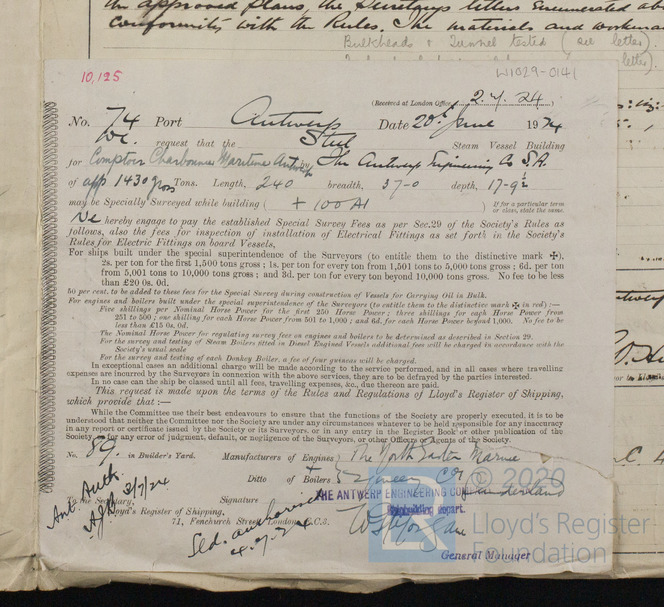 the approved plans, the Secretarys letters enumerated ab
conformity with the Rules. The materials and workman
Bulkheads & Tunnel tested (see letter)
letter).
10,125
W1029-0141
(Received at London Office 2.7.24
No. 74 Port Antwerp Date 20th June 1924
We request that the Steel Steam Vessel Building
for Comptoir Charbonnier Maritime Antwerp by The Antwerp Engineering Co S.A.
of app 1430 gross Tons. Length, 240 breadth, 37-0 depth, 17-9½
may be Specially Surveyed while building ( + 100 A1 ) If for a particular term or class, state the same.
We hereby engage to pay the established Special Survey Fees as per Sec. 29 of the Society's Rules as
follows, also the fees for inspection of installation of Electrical Fittings as set forth in the Society's
Rules for Electric Fittings on board Vessels,
For ships built under the special supervision of the Surveyors (to entitle them to the distinctive mark ✠),
2s. per ton for the first 1,500 tons gross; 1s. per ton for every ton from 1,501 tons to 5,000 tons gross; 6d. per ton
from 5,001 tons to 10,000 tons gross; and 3d. per ton for every ton beyond 10,000 tons gross. No fee to be less
than £20 0s. 0d.
50 per cent. to be added to these fees for the Special Survey during construction of Vessels for Carrying Oil in Bulk.
For engines and boilers built under the special superintendence of the Surveyors (to entitle them to the distinctive mark ✠ in red) :—
Five shillings per Nominal Horse Power for the first 250 Horse Power; three shillings for each Horse Power from
251 to 500; one shilling for each Horse Power from 501 to 1,000; and 6d. for each Horse Power beyond 1,000. No fee to be
less than £15 0s. 0d.
The Nominal Horse Power for regulating survey fee on engines and boilers to be determined as described in Section 29.
For the survey and testing of Steam Boilers fitted in Diesel Engined Vessels additional fees will be charged in accordance with the
Society's usual scale
For the survey and testing of each Donkey Boiler, a fee of four guineas will be charged.
In exceptional cases an additional charge will be made according to the service performed, and in all cases where travelling
expenses are incurred by the Surveyors in connection with the above services, they are to be defrayed by the parties interested.
In no case can the ship be classed until all fees, travelling expenses, &c., due thereon are paid.
This request is made upon the terms of the Rules and Regulations of Lloyd's Register of Shipping,
which provide that :—
While the Committee use their best endeavours to ensure that the functions of the Society are properly executed, it is to be
understood that neither the Committee nor the Society are under any circumstances whatever to be held responsible for any inaccuracy
in any report or certificate issued by the Society or its Surveyors, or in any entry in the Register Book or other publication of the
Society or for any error of judgment, default, or negligence of the Surveyors, or other Officers or Agents of the Society.
No. 89. in Builder's Yard. Manufacturers of Engines The North Eastern Marine
Ditto of Boilers Engineering Co Sunderland
THE ANTWERP ENGINEERING CO
Shipbuilding depart.
Ant. Auth.
3/7/24
To the Secretary,
Lloyd's Register of Shipping,
71, Fenchurch Street, London, E.C.3.
Signature
Sld. authorised
4.7.24
General Manager
© 2020
Lloyd's Register
Foundation